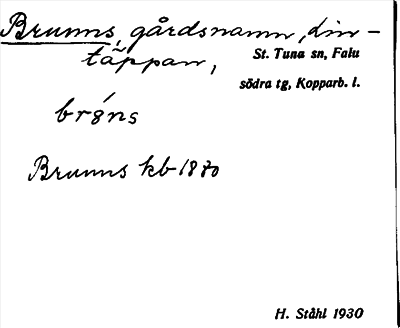 Brunns, gårdsnamn, Lin-
täppan,
St. Tuna sn, Falu
södra tg, Kopparb. l.
brö́ns
Brunns kb 1880
H. Ståhl 1930